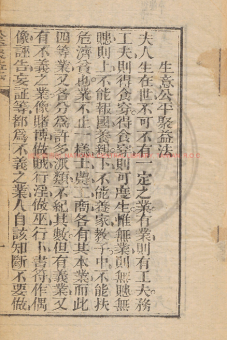 生意公平聚益法
夫人生在世不可不有一定之業有業則有工夫務
工夫則得食穿得食穿則可度生惟無業則無賺無
賺則上不能報國養親中不能養家教子中不能扶
危濟貧也業不止一樣士農工商各有其本業而此
四等業又各分為許多派類不紀其數但有義業又
有不義之業像賭博做賊行淫做巫行卜書符作偶
像評告妄証等都為不義之業人自該知斷不要做